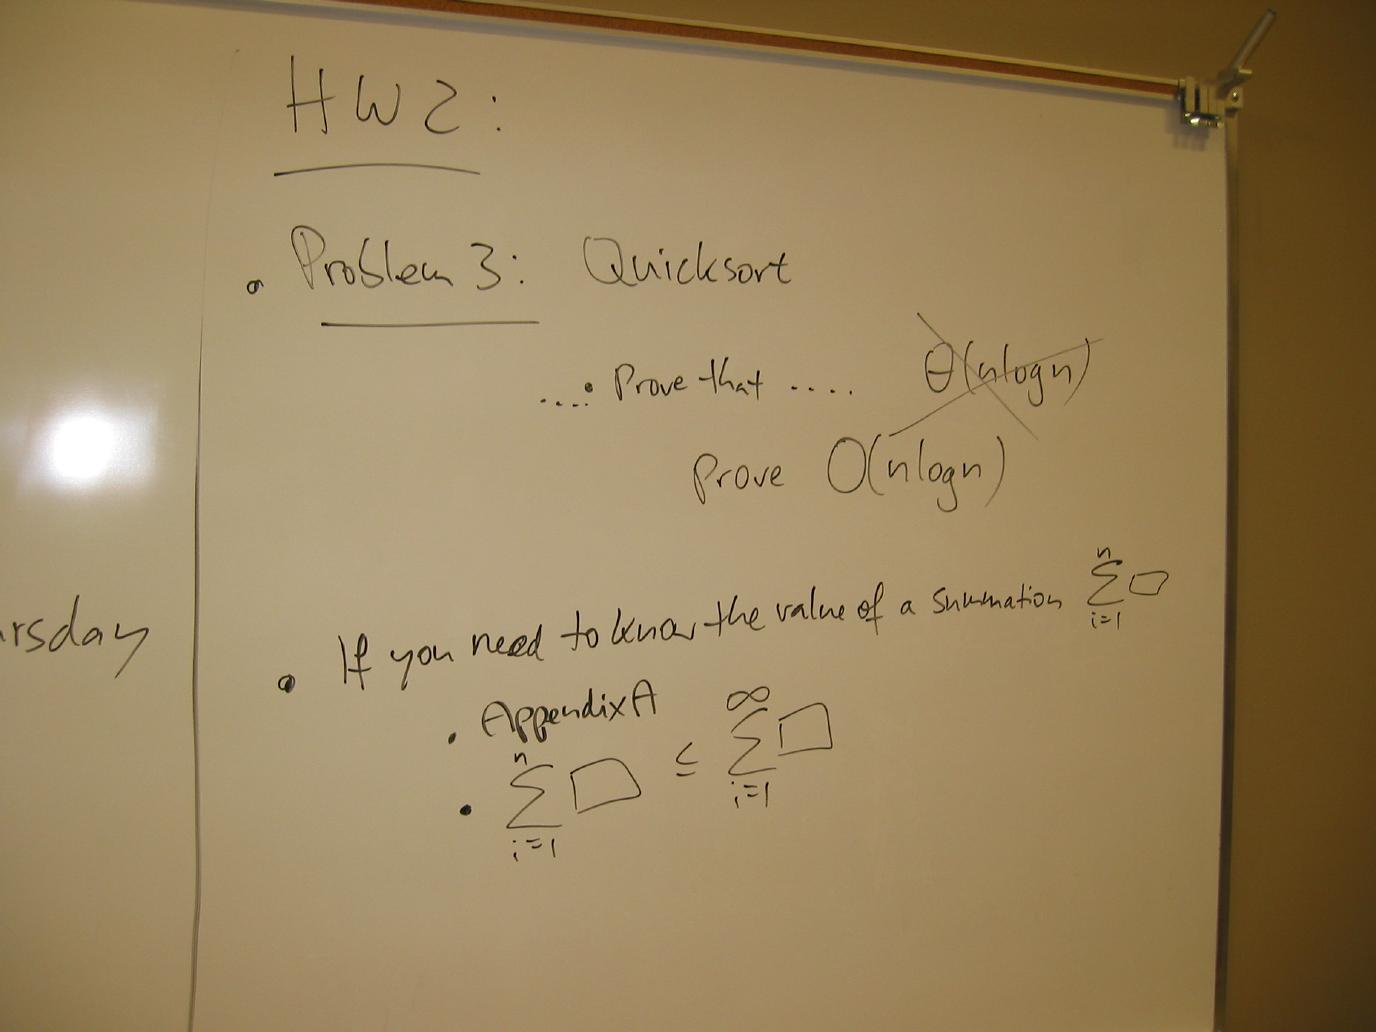 HW2:
• Problem 3: Quicksort
....• Prove that .... Θ(nlogn)
prove O(nlogn)
• If you need to know the value of a summation ∑ⁿᵢ₌₁ □
• Appendix A
• ∑ⁿᵢ₌₁ □ ≤ ∑^∞ᵢ₌₁ □
rsday